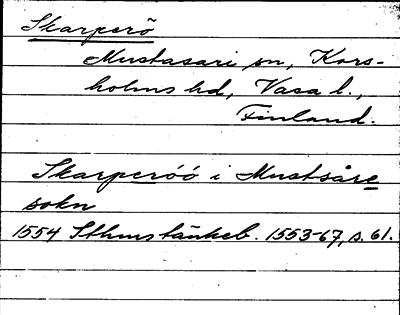 Skarperö
Mustasari sn, Kors-
holms hd, Vasa l.,
Finland.
Skarperöö i Mustsåre
sokn
1554 Sthms tänkeb. 1553-67, s. 61.